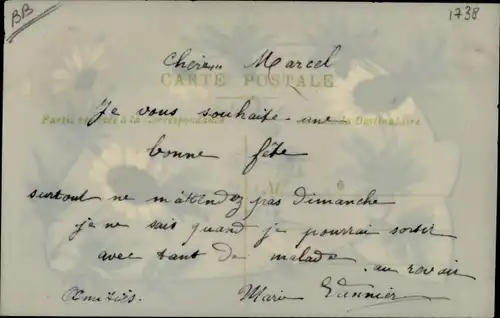 BB
1738
Marcel
CARTE POSTALE
Je vous souhaite une
Partie réservée à la Correspondance la Destinataire
bonne fête
surtout ne m'attendez pas Dimanche
je ne sais quand je pourrai sortir
avec tant de malade. au revoir
Amitiés. Marie